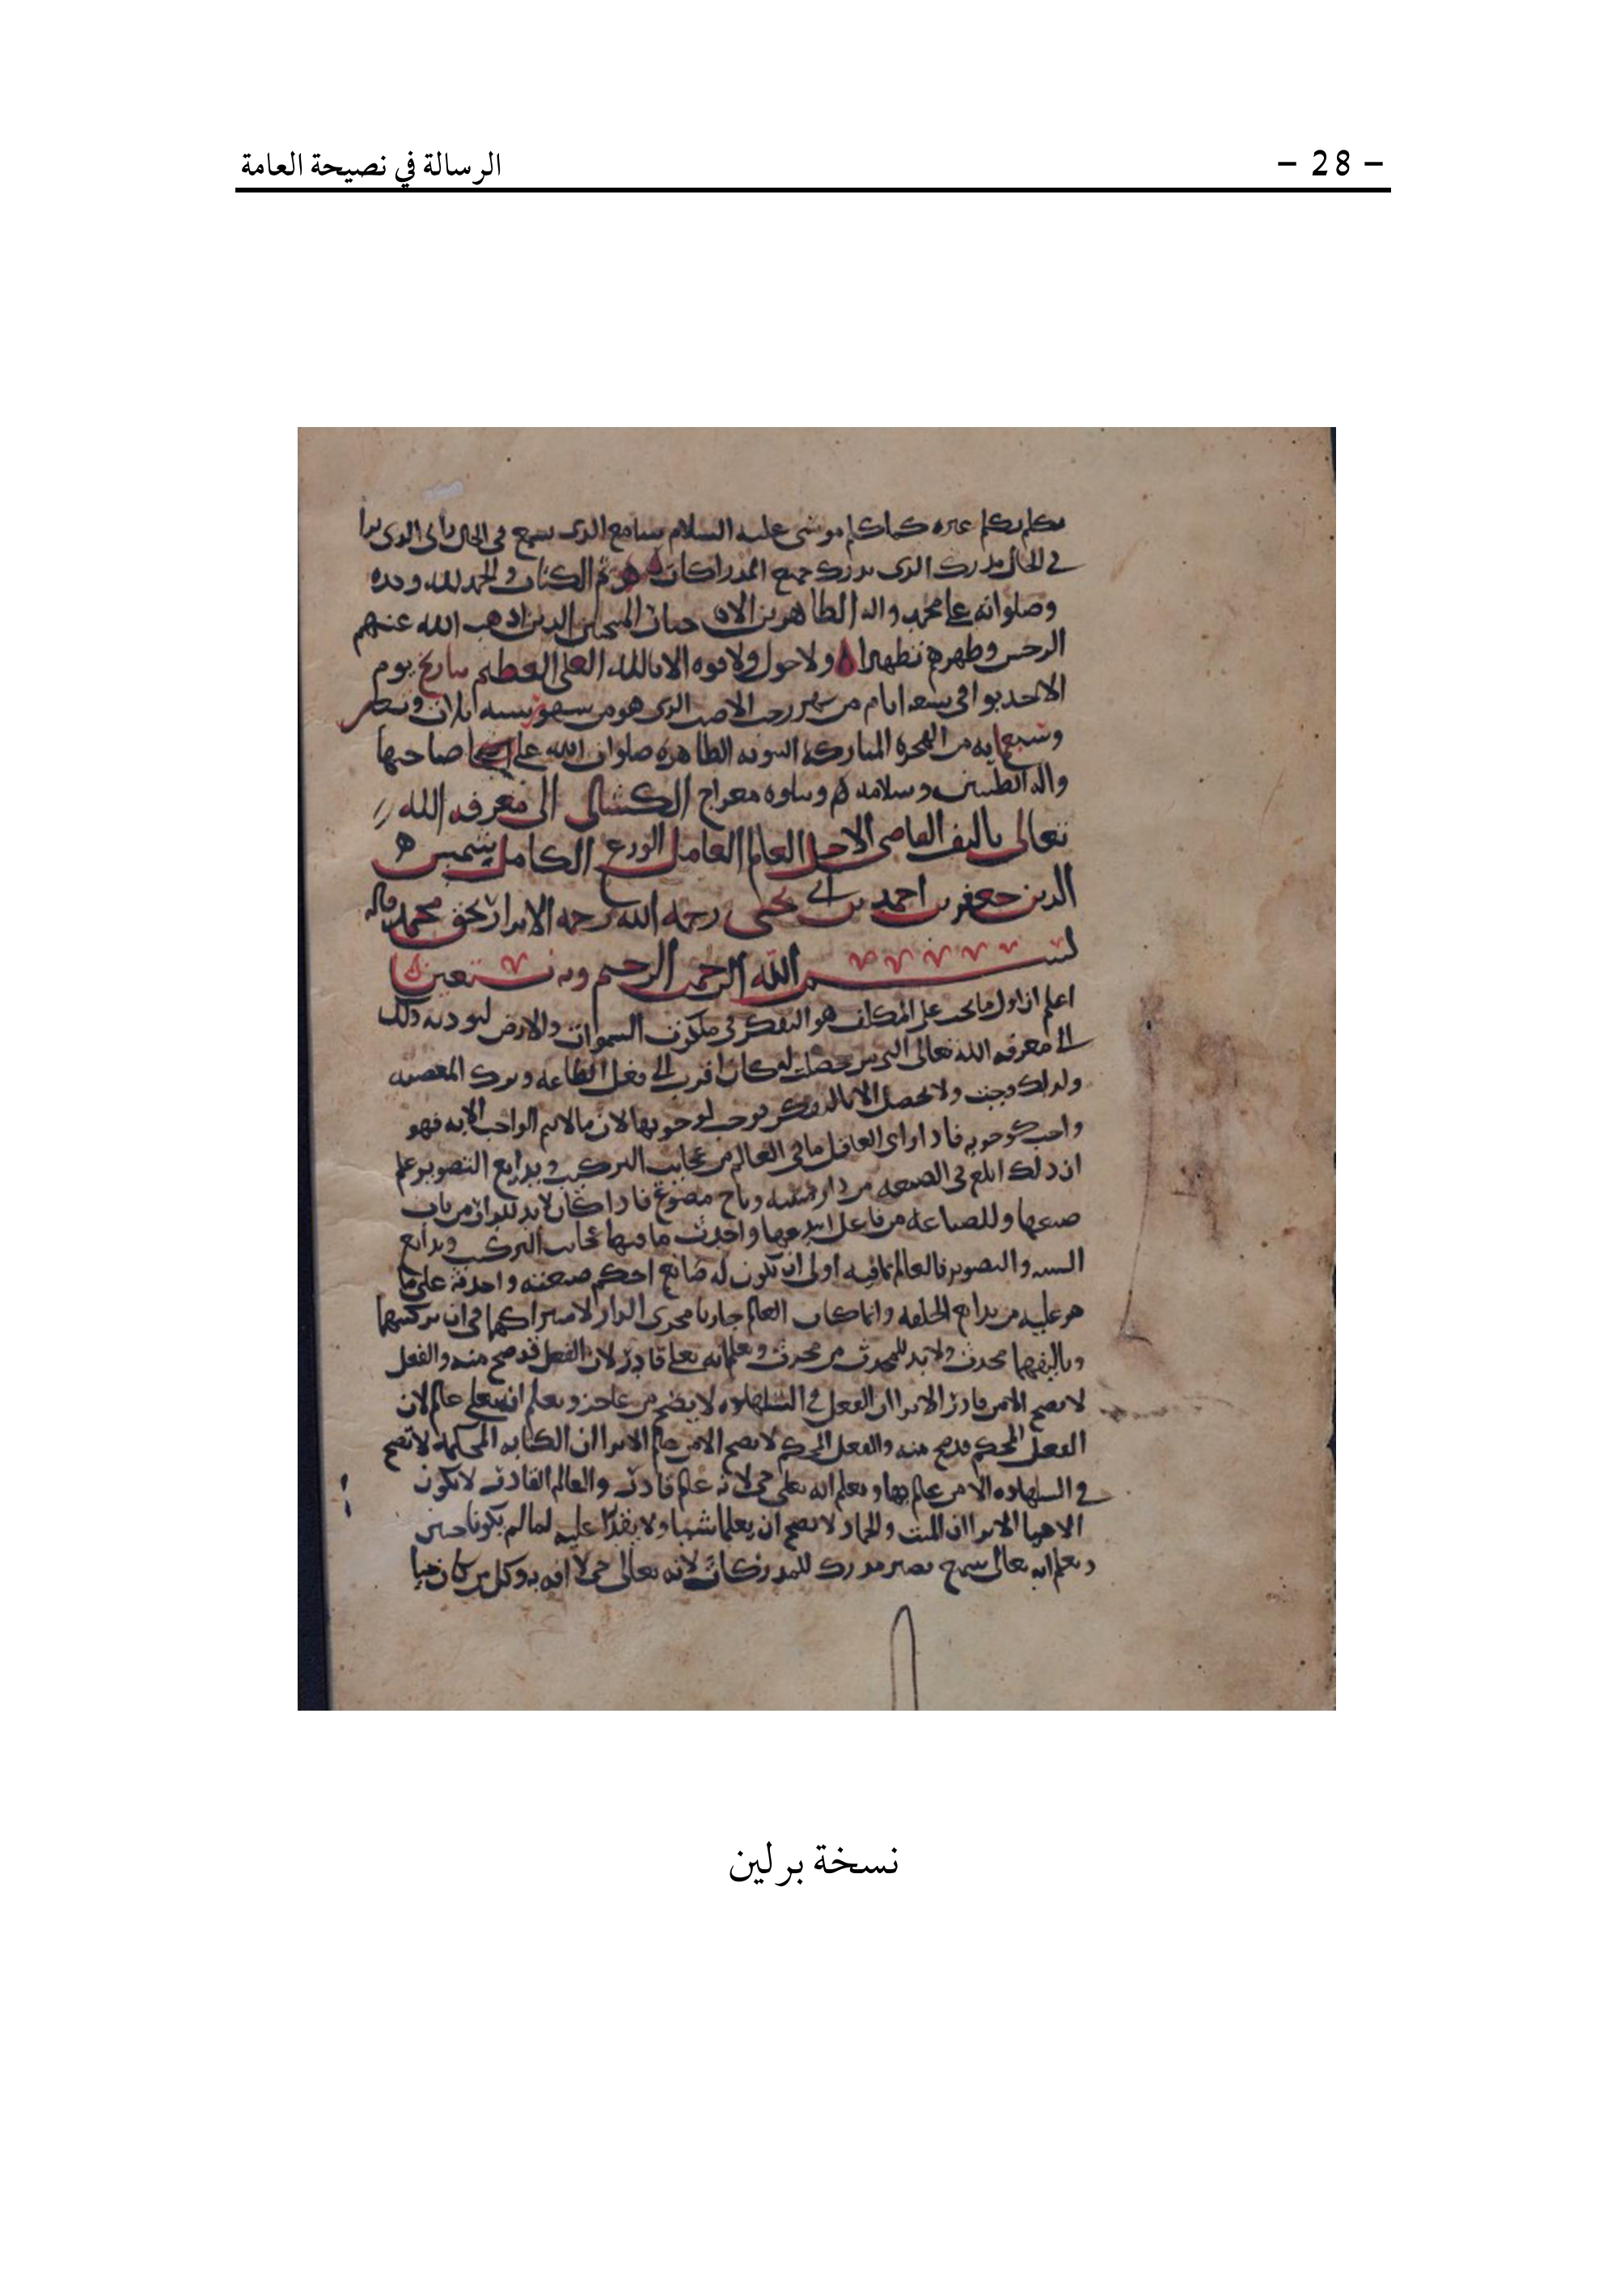 الرسالة في نصيحة العامة
– 28 –
يكلم غيره كما كلم موسى عليه السلام سامع الذى يسمع فى الحال رائى الذى يرا
في الحال مدرك الذى يدرك جميع المدراكات تم الكتاب والحمد لله وحده
وصلواته على محمد واله الطاهرين الذين اذهب الله عنهم
الرجس وطهرهم تطهيرا ولا حول ولا قوه الا بالله العلى العظيم بتاريخ يوم
الاحد بواقى تسعه ايام من شهر رجب الاصب الذى هو من شهور سنه ثلاث
وسبعمايه من الهجره المباركه النبويه الطاهره صلوات الله على صاحبها
واله الطيبين وسلامه ويتلوه معراج الى معرفه الله
تعالى تاليف القاضى الاجل العالم العامل الورع الكامل شمس
الدين جعفر بن احمد بن أبي يحيى رحمه الله رحمه الابرار بحق محمد واله
بسم الله الرحمن الرحيم وبه نستعين
اعلم ان اول ما يجب على المكلف هو التفكر فى ملكوت السموات والارض ليوديه ذلك
الى معرفه الله تعالى التى من حصلت له كان اقرب الى فعل الطاعه وترك المعصيه
ولذلك وجبت ولا تحصل الا بالتفكر فوجب لوجوبها لان ما لا يتم الواجب الا به فهو
واجب كوجوبه فاذا راى العاقل ما فى العالم من عجايب التركيب وبدايع التصوير علم
ان ذلك ابلغ فى الصنعه من دار مبنيه وتاج مصوغ فاذا كان لابد للدار من بان
صنعها وللصياغه من فاعل ابتدعها واحدث ما فيها عجائب التركيب وبدايع
والتصوير فالعالم بما فيه اولى ان يكون له صانع احكم صنعته واحدثه على ما
هو عليه من بدايع الخلقه وانما كان العالم جاريا مجرى الدار لاشتراكهما فى ان تركيبهما
وتاليفهما محدث ولابد للمحدث من محدث ويعلم انه تعلى قادر لان الفعل قد صح منه والفعل
لا يصح الا من قادر الا ترا ان الفعل فى الشاهد لا يصح من عاجز ويعلم انه تعلى عالم لان
الفعل المحكم قد صح منه والفعل المحكم لا يصح الا من عالم الا ترا ان الكتابه المحكمه لا تصح
في الشاهد الا من عالم بها ويعلم انه تعلى حى لانه عالم قادر والعالم القادر لا يكون
الا حيا الا ترا ان الميت والجماد لا يصح ان يعلما شيا ولا يقدرا عليه لما لم يكونا حيين
ويعلم انه تعالى سميع بصير مدرك للمدركات لانه تعالى حى لا افه به وكل من كان حيا
نسخة برلين